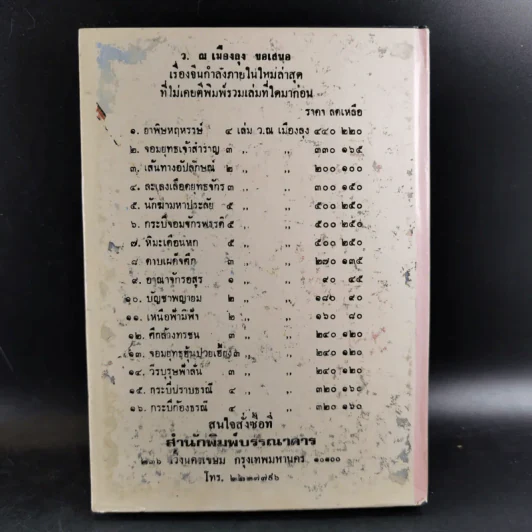 ว. ณ เมืองลุง ขอเสนอ
เรื่องจีนกำลังภายในใหม่ล่าสุด
ที่ไม่เคยตีพิมพ์รวมเล่มที่ใดมาก่อน
ราคา ลดเหลือ
๑. อาพิษหฤหรรษ์ ๔ เล่ม ว.ณ เมืองลุง ๔๔๐ ๒๒๐
๒. จอมยุทธเจ้าสำราญ ๓ ,, ,, ๓๓๐ ๑๖๕
๓. เส้นทางอัปลักษณ์ ๒ ,, ,, ๒๐๐ ๑๐๐
๔. ละเลงเลือดยุทธจักร ๓ ,, ,, ๓๐๐ ๑๕๐
๕. นักฆ่ามหาประลัย ๕ ,, ,, ๕๐๐ ๒๕๐
๖. กระบี่จอมจักรพรรดิ ๕ ,, ,, ๕๐๐ ๒๕๐
๗. หิมะเดือนหก ๕ ,, ,, ๕๐๐ ๒๕๐
๘ ดาบเผด็จศึก ๓ ,, ,, ๒๗๐ ๑๓๕
๙. อาณาจักรอสูร ๑ ,, ,, ๙๐ ๔๕
๑๐. บัญชาพญายม ๒ ,, ,, ๑๘๐ ๙๐
๑๑. เหนือฟ้ามีฟ้า ๒ ,, ,, ๑๖๐ ๘๐
๑๒. ศึกล้างทรชน ๓ ,, ,, ๒๔๐ ๑๒๐
๑๓. จอมยุทธฮุ้นปวยเอี้ยง ๓ ,, ,, ๒๔๐ ๑๒๐
๑๔. วีรบุรุษฟ้าลั่น ๓ ,, ,, ๒๔๐ ๑๒๐
๑๕. กระบี่ปราบธรณี ๔ ,, ,, ๓๒๐ ๑๖๐
๑๖. กระบี่ก้องธรณี ๔ ,, ,, ๓๒๐ ๑๖๐
สนใจสั่งซื้อที่
สำนักพิมพ์บรรณาคาร
๒๓๖ เวิ้งนครเขษม กรุงเทพมหานคร ๑๐๑๐๐
โทร. ๒๒๓๗๗๙๖